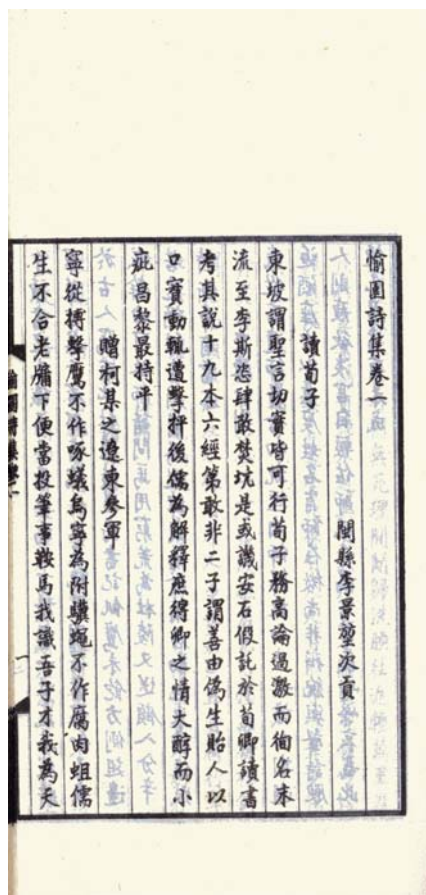 愉園詩集卷一
閩縣李景堃次貢
讀荀子
東坡謂聖言切實皆可行荀子務高論過激而徇名末
流至李斯恣肆敢焚坑是或譏安石假託於荀卿讀書
考其說十九本六經第敢非二子謂善由偽生貽人以
口實動輒遭擊抨後儒為解釋庶得卿之情大醇而小
疵昌黎最持平
贈柯某之遼東參軍
寧從搏擊鷹不作啄蟻烏寧為附驥蠅不作腐肉蛆儒
生不合老牖下便當投筆事鞍馬我識吾子才我為天